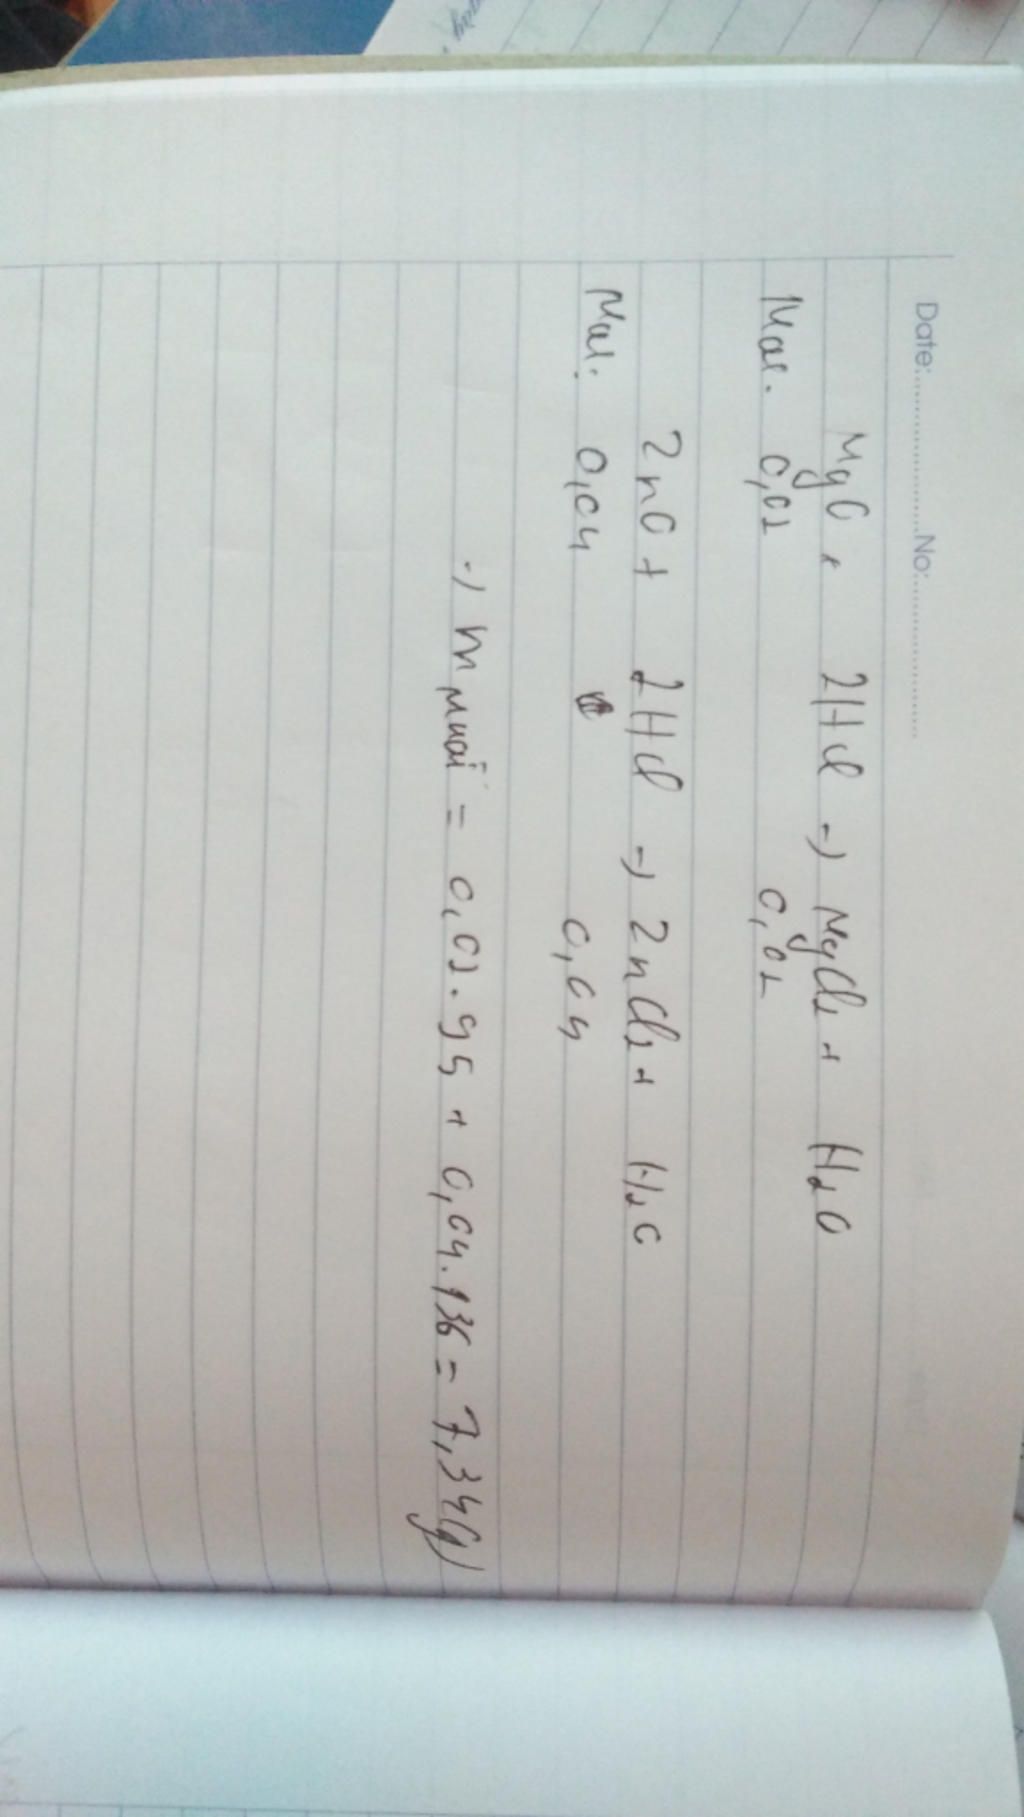 Date:..................No:..................
MgO + 2HCl -> MgCl₂ + H₂O
Mol. 0,02 0,02
ZnO + 2HCl -> ZnCl₂ + H₂O
Mol. 0,04 0,04
-> m muối = 0,02.95 + 0,04.136 = 7,34(g)